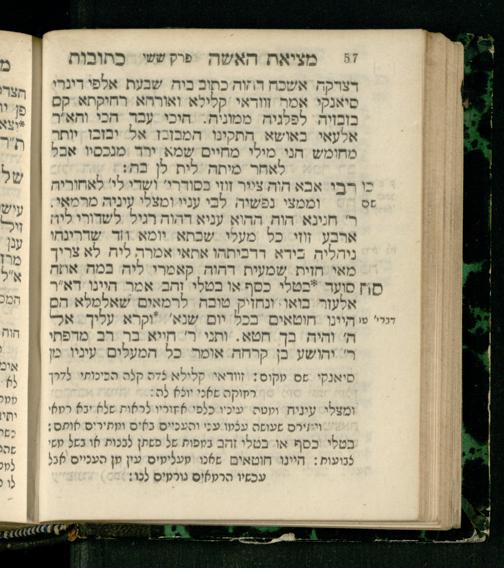 57 מציאת האשה פרק ששי כתובות
דצדקה אשכח דהוה כתוב ביה שבעת אלפי דינרי
סיאנקי אמר זוודאי קלילא ואורחא רחיקתא קם
בזבזיה לפלגיה ממוניה. היכי עבד הכי והא״ר
אלעאי באושא התקינו המבזבז אל יבזבז יותר
מחומש הני מילי מחיים שמא ירד מנכסיו אבל
לאחר מיתה לית לן בה:
רבי אבא הוה צייר זוזי בסודרי׳ ושדי לי׳ לאחוריה
שם וממצי נפשיה לבי עניי ומצלי עיניה מרמאי.
ר׳ חנינא הוה ההוא עניא דהוה רגיל לשדורי ליה
ארבע זוזי כל מעלי שבתא יומא חד שדרינהו
ניהליה בידא דדביתהו אתאי אמרה ליה לא צריך
מאי חזית שמעית דהוה קאמרי ליה במה אתה
סח סועד *בטלי כסף או בטלי זהב אמר היינו דא״ר
אלעזר בואו ונחזיק טובה לרמאים שאלמלא הם
דברי׳ טו היינו חוטאים בכל יום שנא׳ *וקרא עליך אל
ה׳ והיה בך חטא. ותני ר׳ חייא בר רב מדפתי
ר׳ יהושע בן קרחה אומר כל המעלים עיניו מן
סיאנקי שם מקום: זוודאי קלילא לדה קלה הכינותי לדרך
רחוקה שאני יולא לה:
ומצלי עיניה ומטה עיניו כלפי אחוריו לראות שלא יבא רמאי
ויטירם שעושה עלמו עני והעניים באים ומתירים אותם:
בטלי כסף או בטלי זהב במפות של פשתן לבנות או בשל משי
לבועות: היינו חוטאים שאנו מעלימים עין מן העניים אבל
עכשיו הרמאים גורמים לנו: